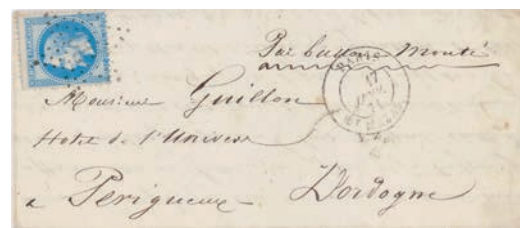 Par ballon monté
PARIS
17
JANV.
71
Monsieur Guillon
Hotel de l'Univers
a Perigueux – Dordogne